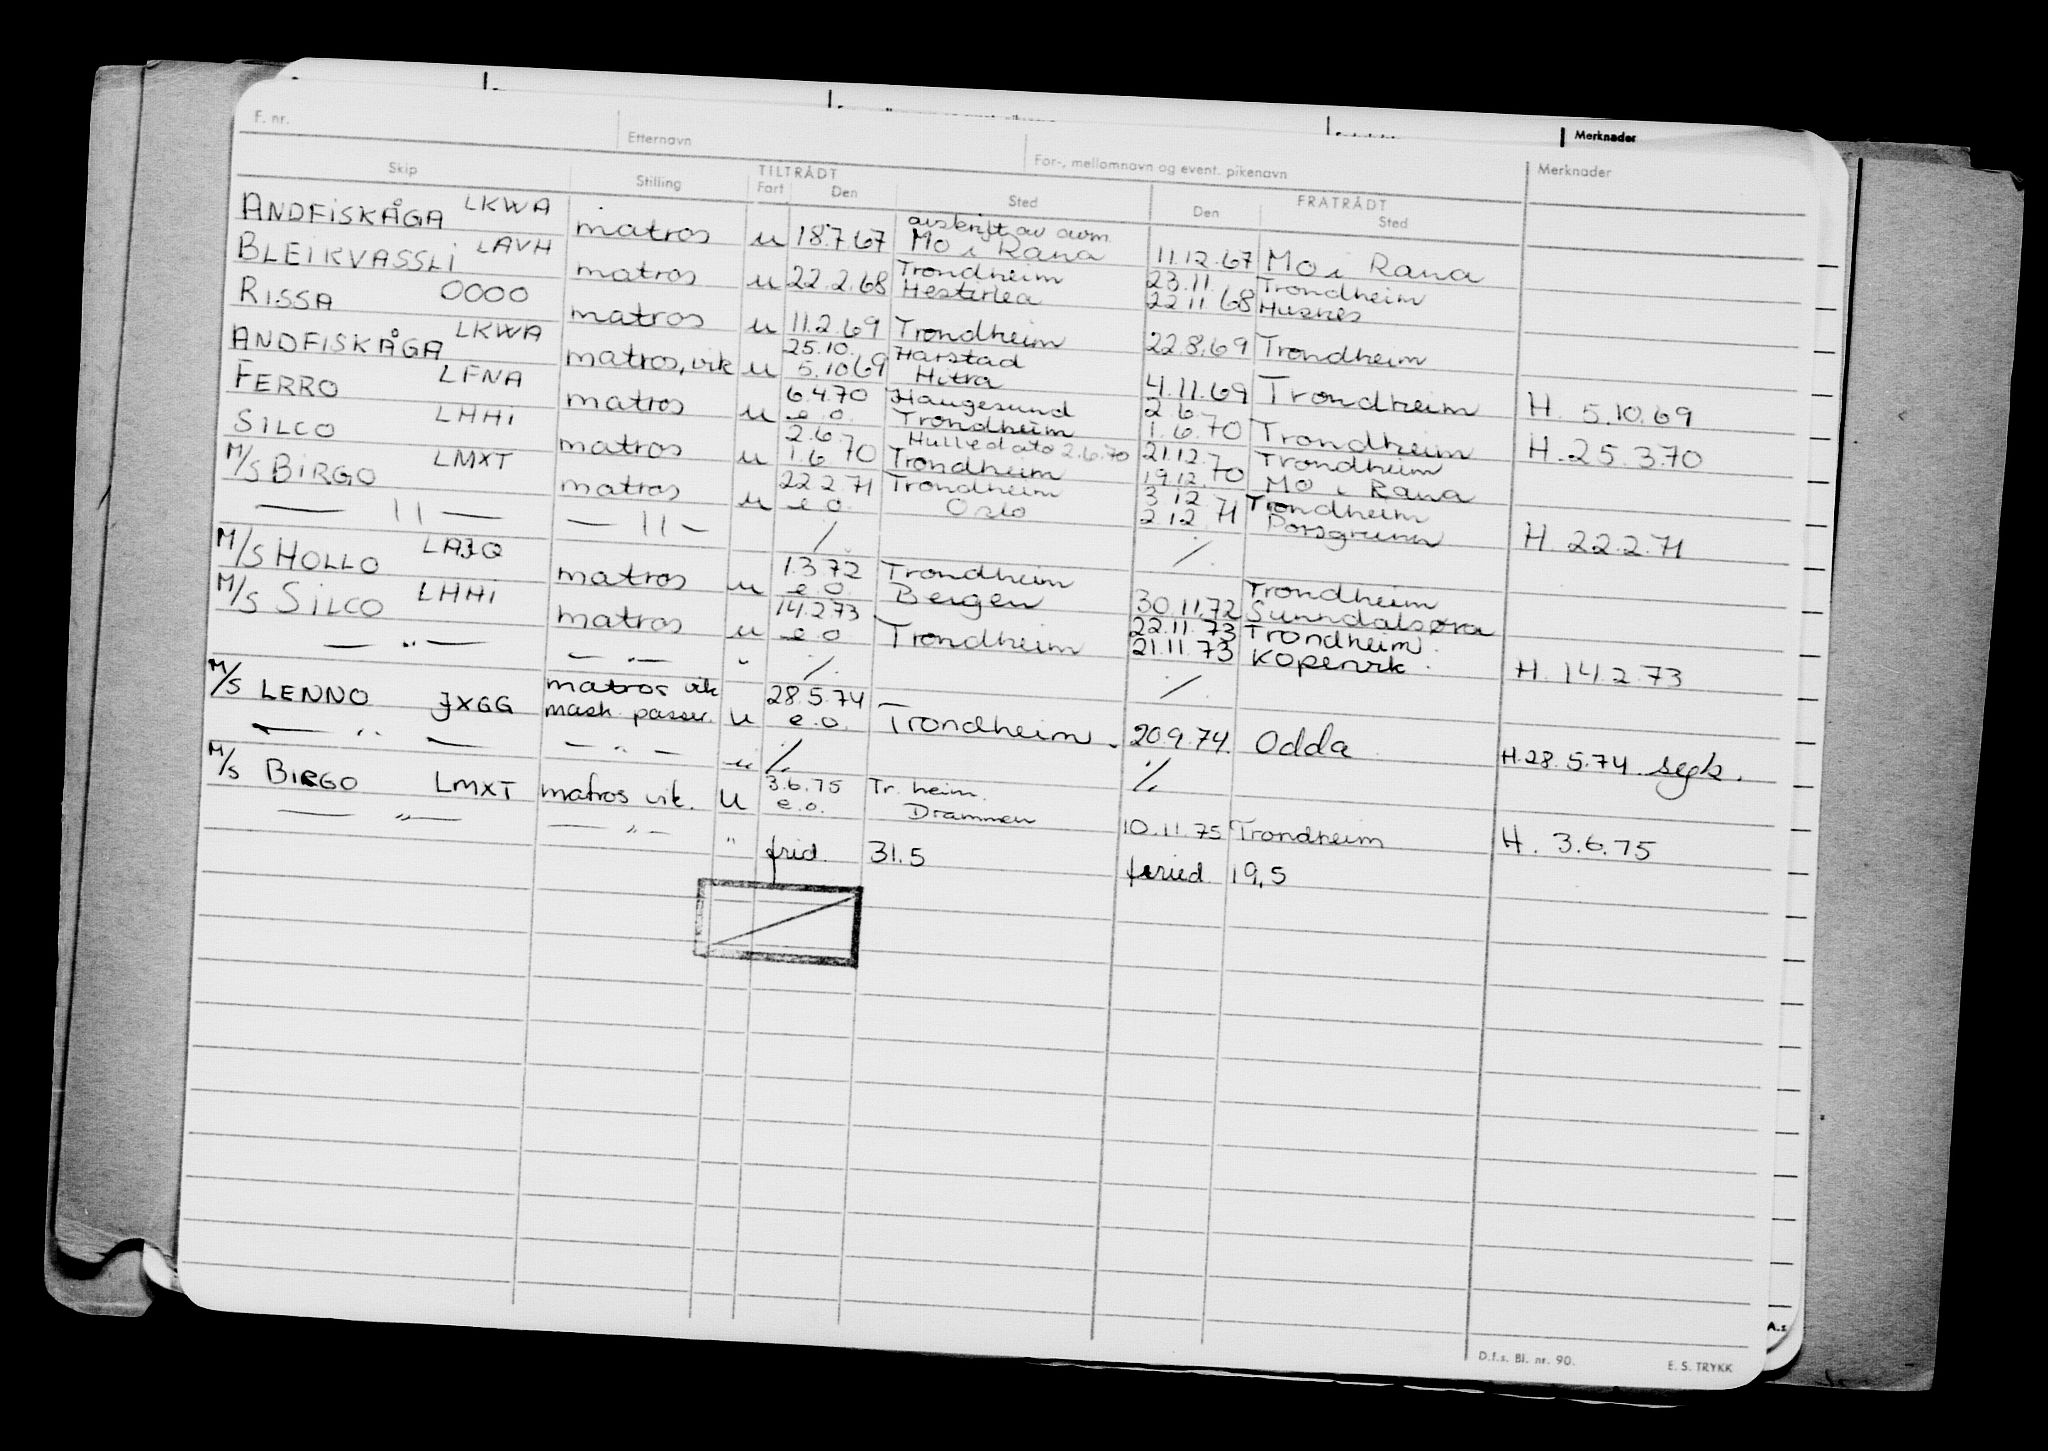 Merknader
F. nr.
Etternavn
For-, mellomnavn og event. pikenavn
Merknader
Skip Stilling TILTRÅDT FRATRÅDT
Fart Den Sted Den Sted
ANDFISKÅGA LKWA matros u 18.7.67 avskrift av avm. Mo i Rana 11.12.67 Mo i Rana
BLEIKVASSLI LAVH matros u 22.2.68 Trondheim 23.11. Trondheim
22.11.68
RISSA OOOO matros u 11.2.69 Trondheim 22.8.69 Trondheim
ANDFISKÅGA LKWA matros, vik u 25.10. Harstad
5.10.69 Hitra 4.11.69 Trondheim H. 5.10.69
FERRO LFNA matros u 6.4.70 Haugesund 2.6
e.o. Trondheim 1.6.70 Trondheim H. 25.3.70
SILCO LHHI matros u 2.6. Hulledato 2.6.70 21.12. Trondheim
1.6 70 Trondheim 19.12.70 Mo i Rana
M/S BIRGO LMXT matros u 22.2.71 Trondheim 3.12 Trondheim
e.o. Oslo 2.12.71 Porsgrunn H. 22.2.71
— 11 — — 11 — / /.
M/S HOLLO LAJQ matros u 1.3.72 Trondheim Trondheim
e.o. Bergen 30.11.72 Sunndalsøra
M/S SILCO LHHI matros u 14.2.73 22.11.73 Trondheim.
e.o Trondheim 21.11.73 Kopervik. H. 14.2.73
— " — — " — " /. /.
M/S LENNO JXGG matros vik 28.5.74
mask. passer. u e.o. Trondheim. 20.9.74. Odda H.28.5.74. segk.
— " — — " — " % %
M/S BIRGO LMXT matros vik. u 3.6.75 Tr.heim.
e.o. Drammen 10.11.75 Trondheim H. 3.6.75
— " — — " — " frid. 31.5 feried 19,5
D.f.s. Bl. nr. 90. E. S. TRYKK
A.s